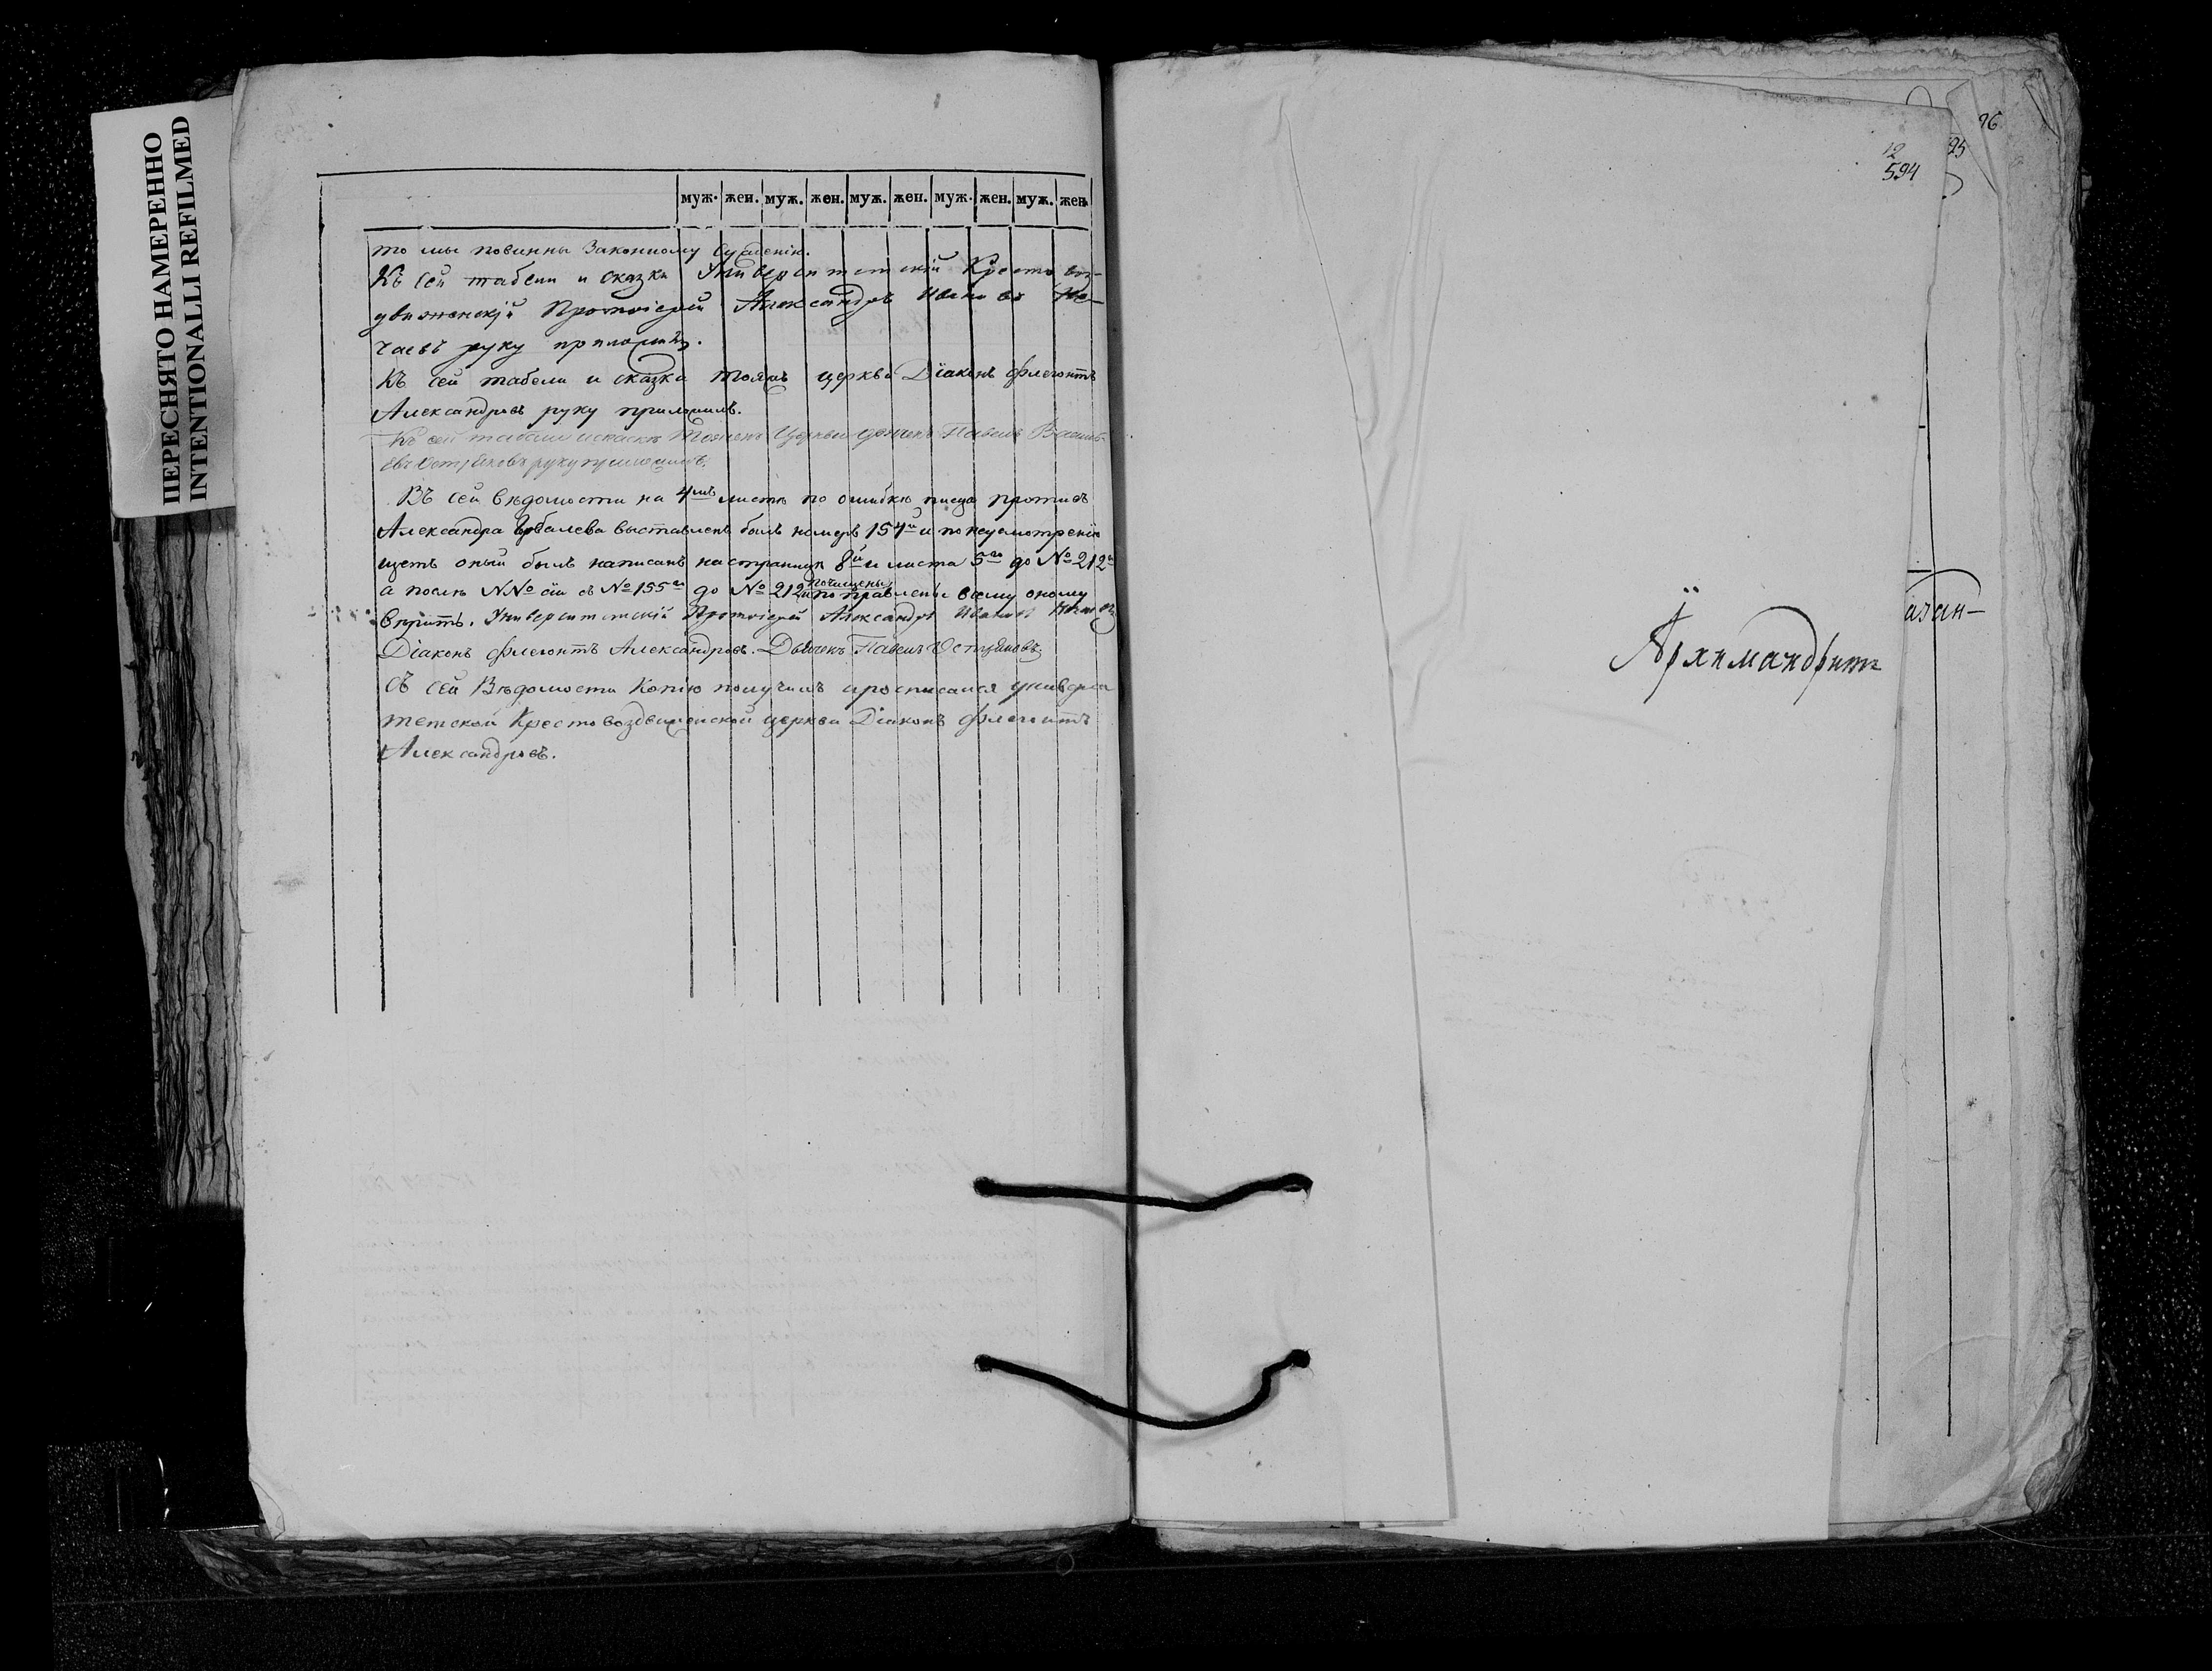 ПЕРЕСНЯТО НАМЕРЕННО
INTENTIONALLI REFILMED
муж. жен. муж. жен. муж. жен. муж. жен. муж. жен.
то мы повинны Законному Сужденію.
Къ сей табели и сказки Университетскій Кресто воз-
движенскій Протоіерей Александръ Ивановъ
руку приложилъ.
Къ сей табели и сказки тояжъ церкви Діаконъ Флегонтъ
Александровъ руку приложилъ.
Къ сей табели и сказки тояжъ Церкви дьячекъ Павелъ Василь-
евъ руку приложилъ.
Въ сей вѣдомости на 4мъ листѣ по ошибкѣ писца противъ
Александра выставленъ былъ номеръ 154й и по неусмотренію
щетъ оный былъ написанъ на страницѣ 8й и листа 5го до № 212го
а послѣ №№ сіи съ № 155го до № 212го почищены и поправлены всему оному
вѣрить. Университетскій Протоіерей Александръ Ивановъ
Діаконъ Флегонтъ Александровъ. Дьячекъ Павелъ
Съ сей Вѣдомости Копію получилъ и росписался универси
тетской Крестовоздвиженской церкви Діаконъ Флегонтъ
Александровъ.
96
25
12
594
азан-
Архимандритъ